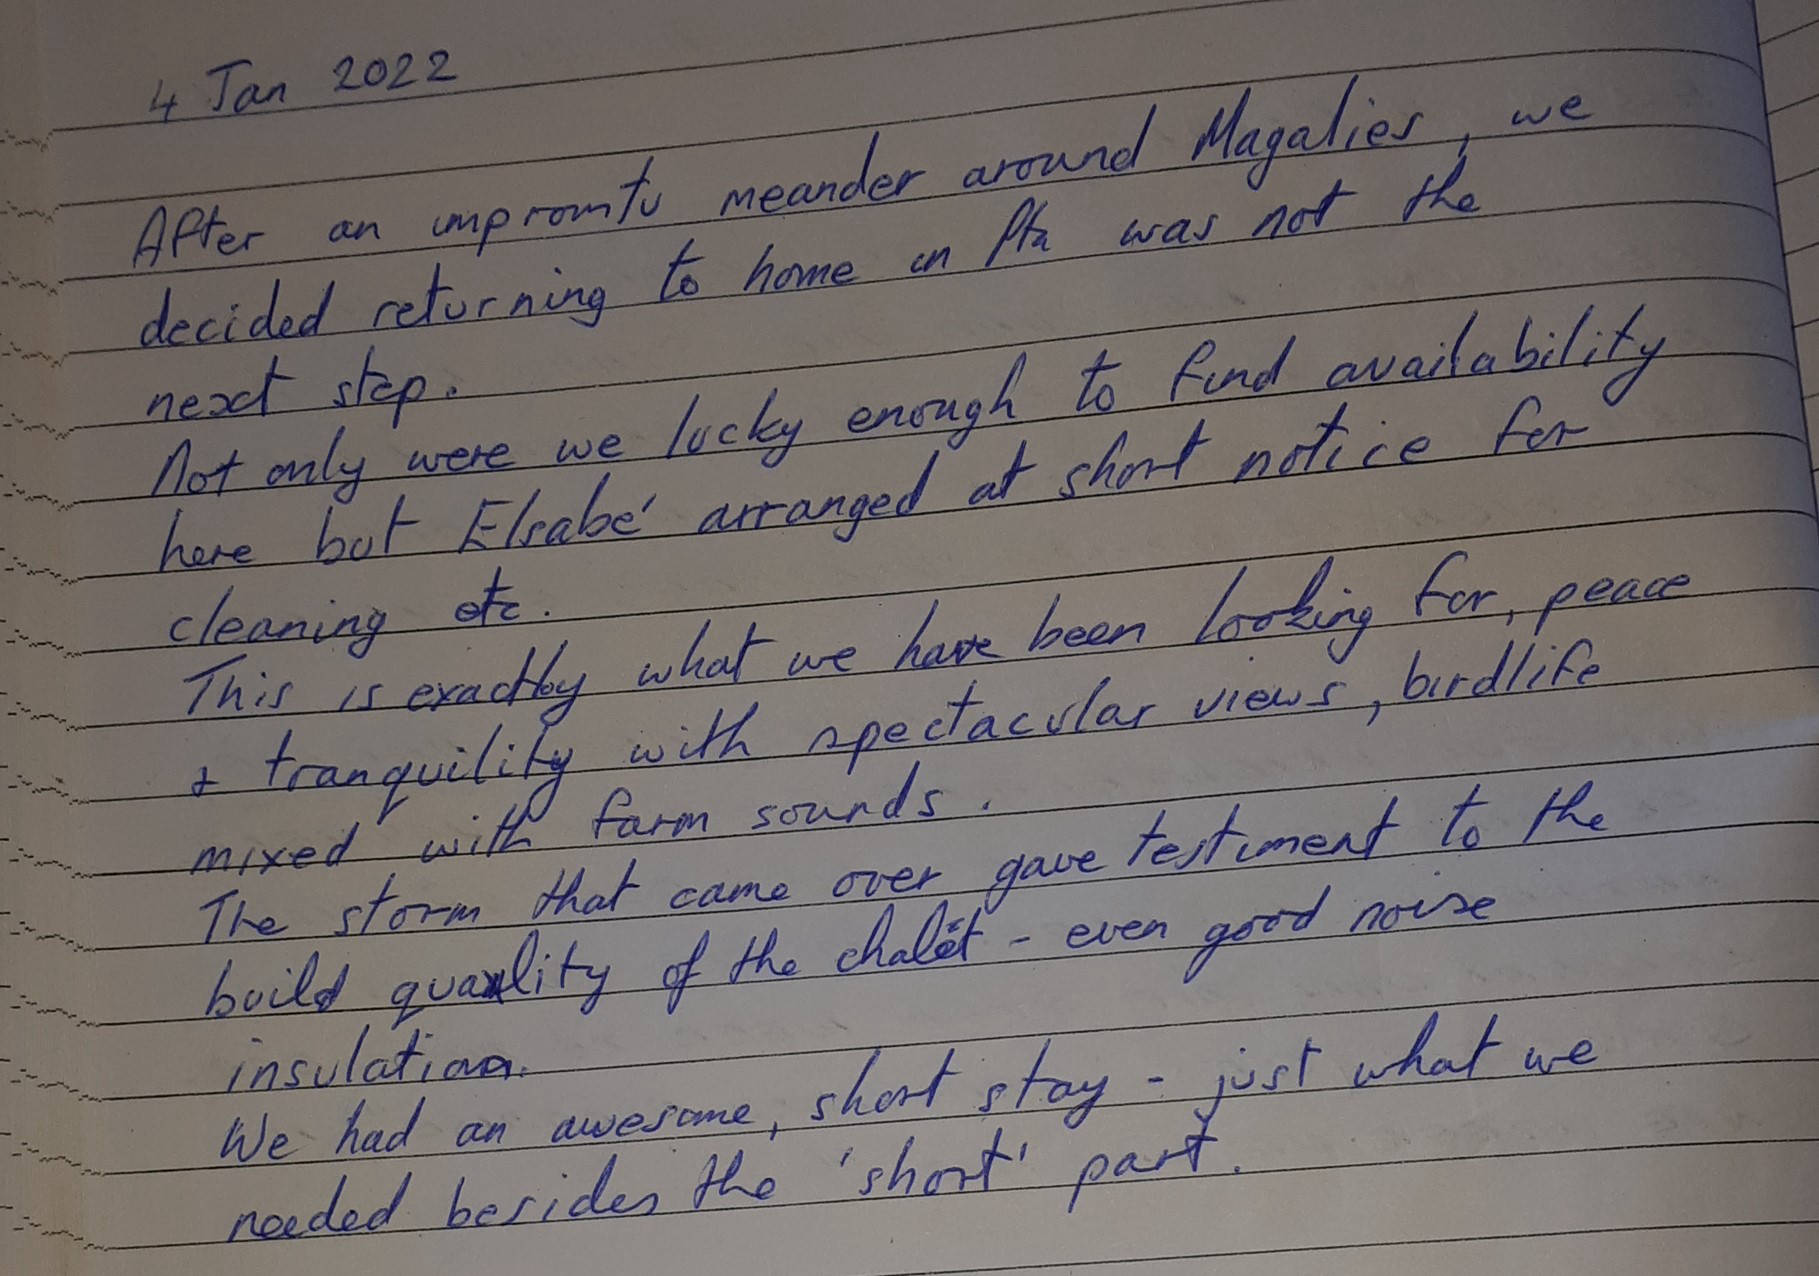 4 Jan 2022
After an impromtu meander around Magalies, we
decided returning to home in Pta was not the
next step.
Not only were we lucky enough to find availability
here but Elsabé arranged at short notice for
cleaning etc.
This is exactly what we have been looking for, peace
+ tranquility with spectacular views, birdlife
mixed with farm sounds.
The storm that came over gave testiment to the
build quality of the chalêt - even good noise
insulation.
We had an awesome, short stay - just what we
needed besides the 'short' part.